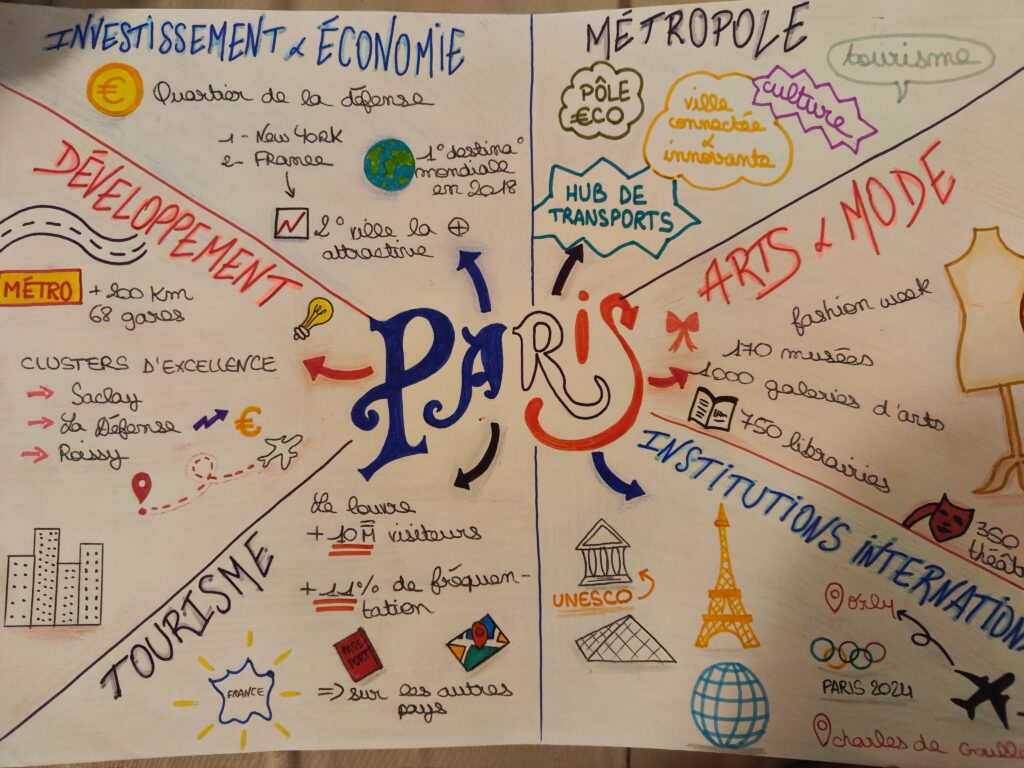 INVESTISSEMENT & ÉCONOMIE
€ Quartier de la défense
1 - New York
2 - France
1° destina°
mondiale
en 2018
2° ville la ⊕
attractive
MÉTROPOLE
tourisme
PÔLE
€CO
ville
connectée
&
innovante
culture
HUB DE
TRANSPORTS
DÉVELOPPEMENT
MÉTRO
+ 200 Km
68 gares
CLUSTERS D'EXCELLENCE
→ Saclay
→ La Défense €
→ Roissy
PARIS
ARTS & MODE
fashion week
170 musées
1000 galeries d'arts
750 librairies
350
théât
TOURISME
Le louvre
+ 10M visiteurs
+ 11% de fréquen-
tation
PASS
PORT
FRANCE
=> sur les autres
pays
INSTITUTIONS INTERNATION
UNESCO
orly
PARIS 2024
charles de Gaulle